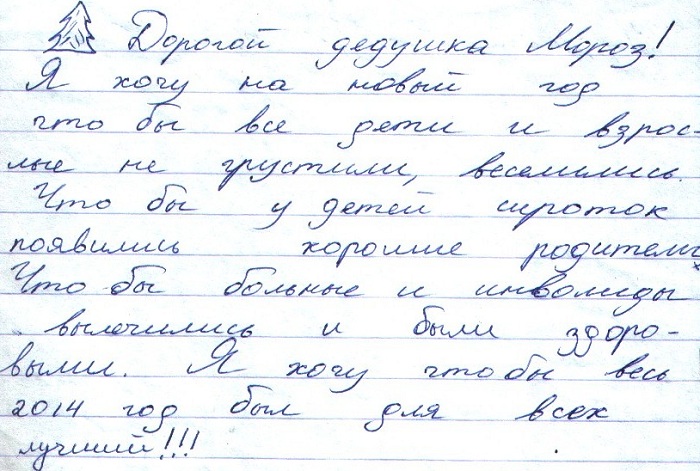 Дорогой дедушка Мороз!
Я хочу на новый год
что бы все дети и взрос-
лые не грустили, веселились.
Что бы у детей сироток
появились хорошие родители
Что бы больные и инвалиды
вылечились и были здоро-
выми. Я хочу что бы весь
2014 год был для всех
лучший!!!